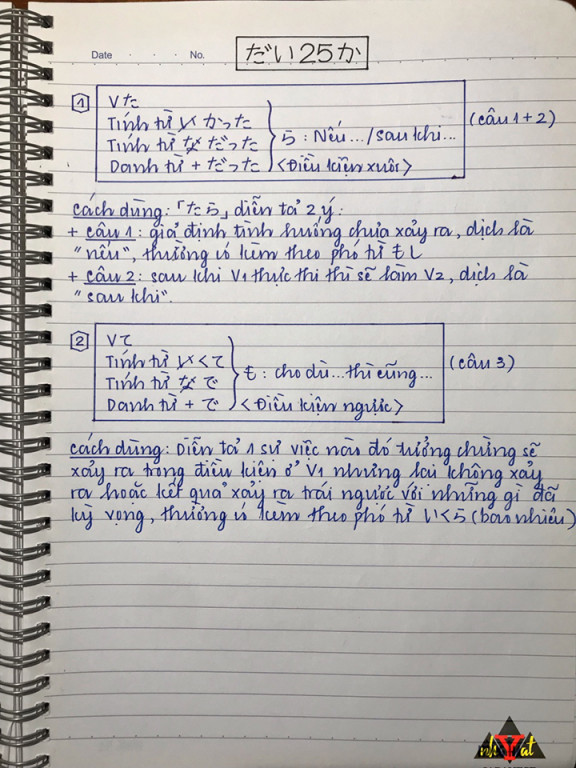 Date . . . No.
だい25か
1 Vた
Tính từ い かった
Tính từ な だった
Danh từ + だった
ら : Nếu.../sau khi...
<Điều kiện xuôi>
(câu 1+2)
cách dùng: 「たら」 diễn tả 2 ý:
+ câu 1: giả định tình huống chưa xảy ra, dịch là
"nếu", thường có kèm theo phó từ もし
+ câu 2: sau khi V1 thực thi thì sẽ làm V2, dịch là
"sau khi".
2 Vて
Tính từ い くて
Tính từ な で
Danh từ + で
も : cho dù...thì cũng...
<Điều kiện ngược>
(câu 3)
cách dùng: Diễn tả 1 sự việc nào đó tưởng chừng sẽ
xảy ra trong điều kiện ở V1 nhưng lại không xảy
ra hoặc kết quả xảy ra trái ngược với những gì đã
kỳ vọng, thường có kèm theo phó từ いくら (bao nhiêu)